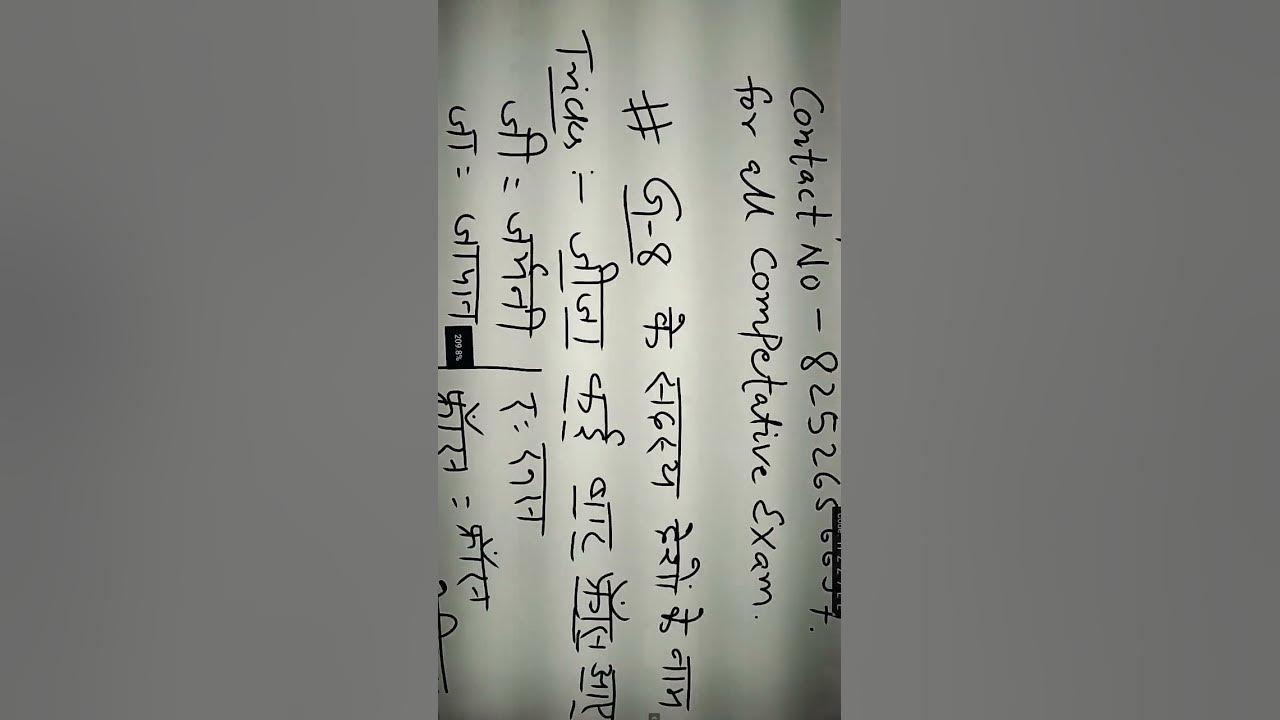 Contact No - 825265
for all Competative Exam.
# G-8 के सदस्य देशों के नाम
Tricks :- जीजा कई बार फ्राँस आए
जी = जर्मनी
जा = जापान
फ्राँस = फ्राँस
209.8%